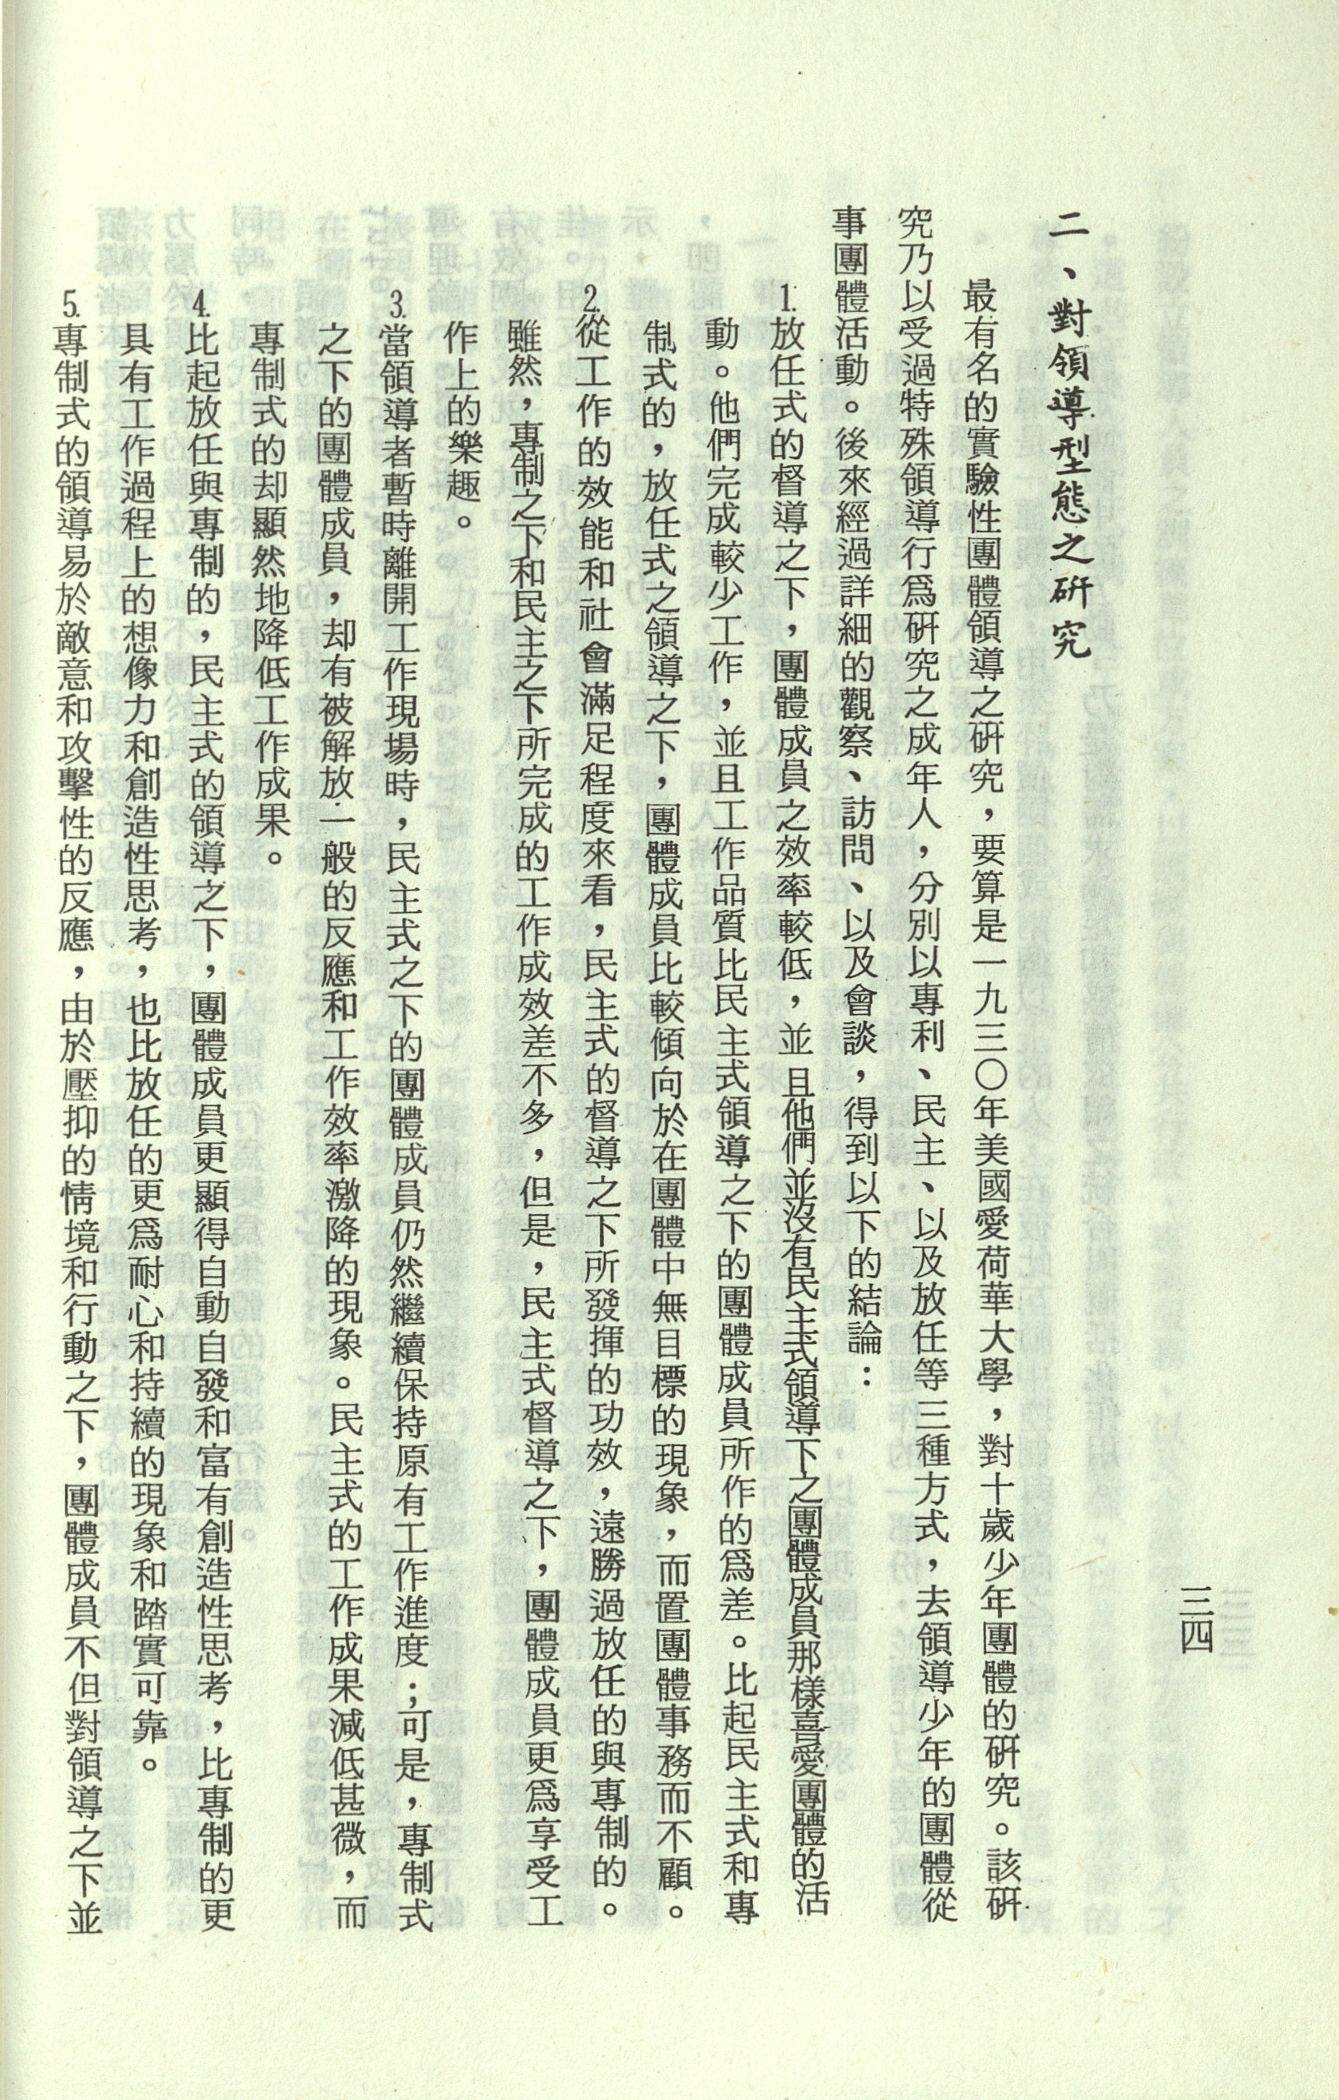 三四
二、對領導型態之研究
最有名的實驗性團體領導之研究，要算是一九三〇年美國愛荷華大學，對十歲少年團體的研究。該研
究乃以受過特殊領導行爲研究之成年人，分別以專利、民主、以及放任等三種方式，去領導少年的團體從
事團體活動。後來經過詳細的觀察、訪問、以及會談，得到以下的結論：
1.放任式的督導之下，團體成員之效率較低，並且他們並沒有民主式領導下之團體成員那樣喜愛團體的活
動。他們完成較少工作，並且工作品質比民主式領導之下的團體成員所作的爲差。比起民主式和專
制式的，放任式之領導之下，團體成員比較傾向於在團體中無目標的現象，而置團體事務而不顧。
2.從工作的效能和社會滿足程度來看，民主式的督導之下所發揮的功效，遠勝過放任的與專制的。
雖然，專制之下和民主之下所完成的工作成效差不多，但是，民主式督導之下，團體成員更爲享受工
作上的樂趣。
3.當領導者暫時離開工作現場時，民主式之下的團體成員仍然繼續保持原有工作進度；可是，專制式
之下的團體成員，却有被解放一般的反應和工作效率激降的現象。民主式的工作成果減低甚微，而
專制式的却顯然地降低工作成果。
4.比起放任與專制的，民主式的領導之下，團體成員更顯得自動自發和富有創造性思考，比專制的更
具有工作過程上的想像力和創造性思考，也比放任的更爲耐心和持續的現象和踏實可靠。
5.專制式的領導易於敵意和攻擊性的反應，由於壓抑的情境和行動之下，團體成員不但對領導之下並